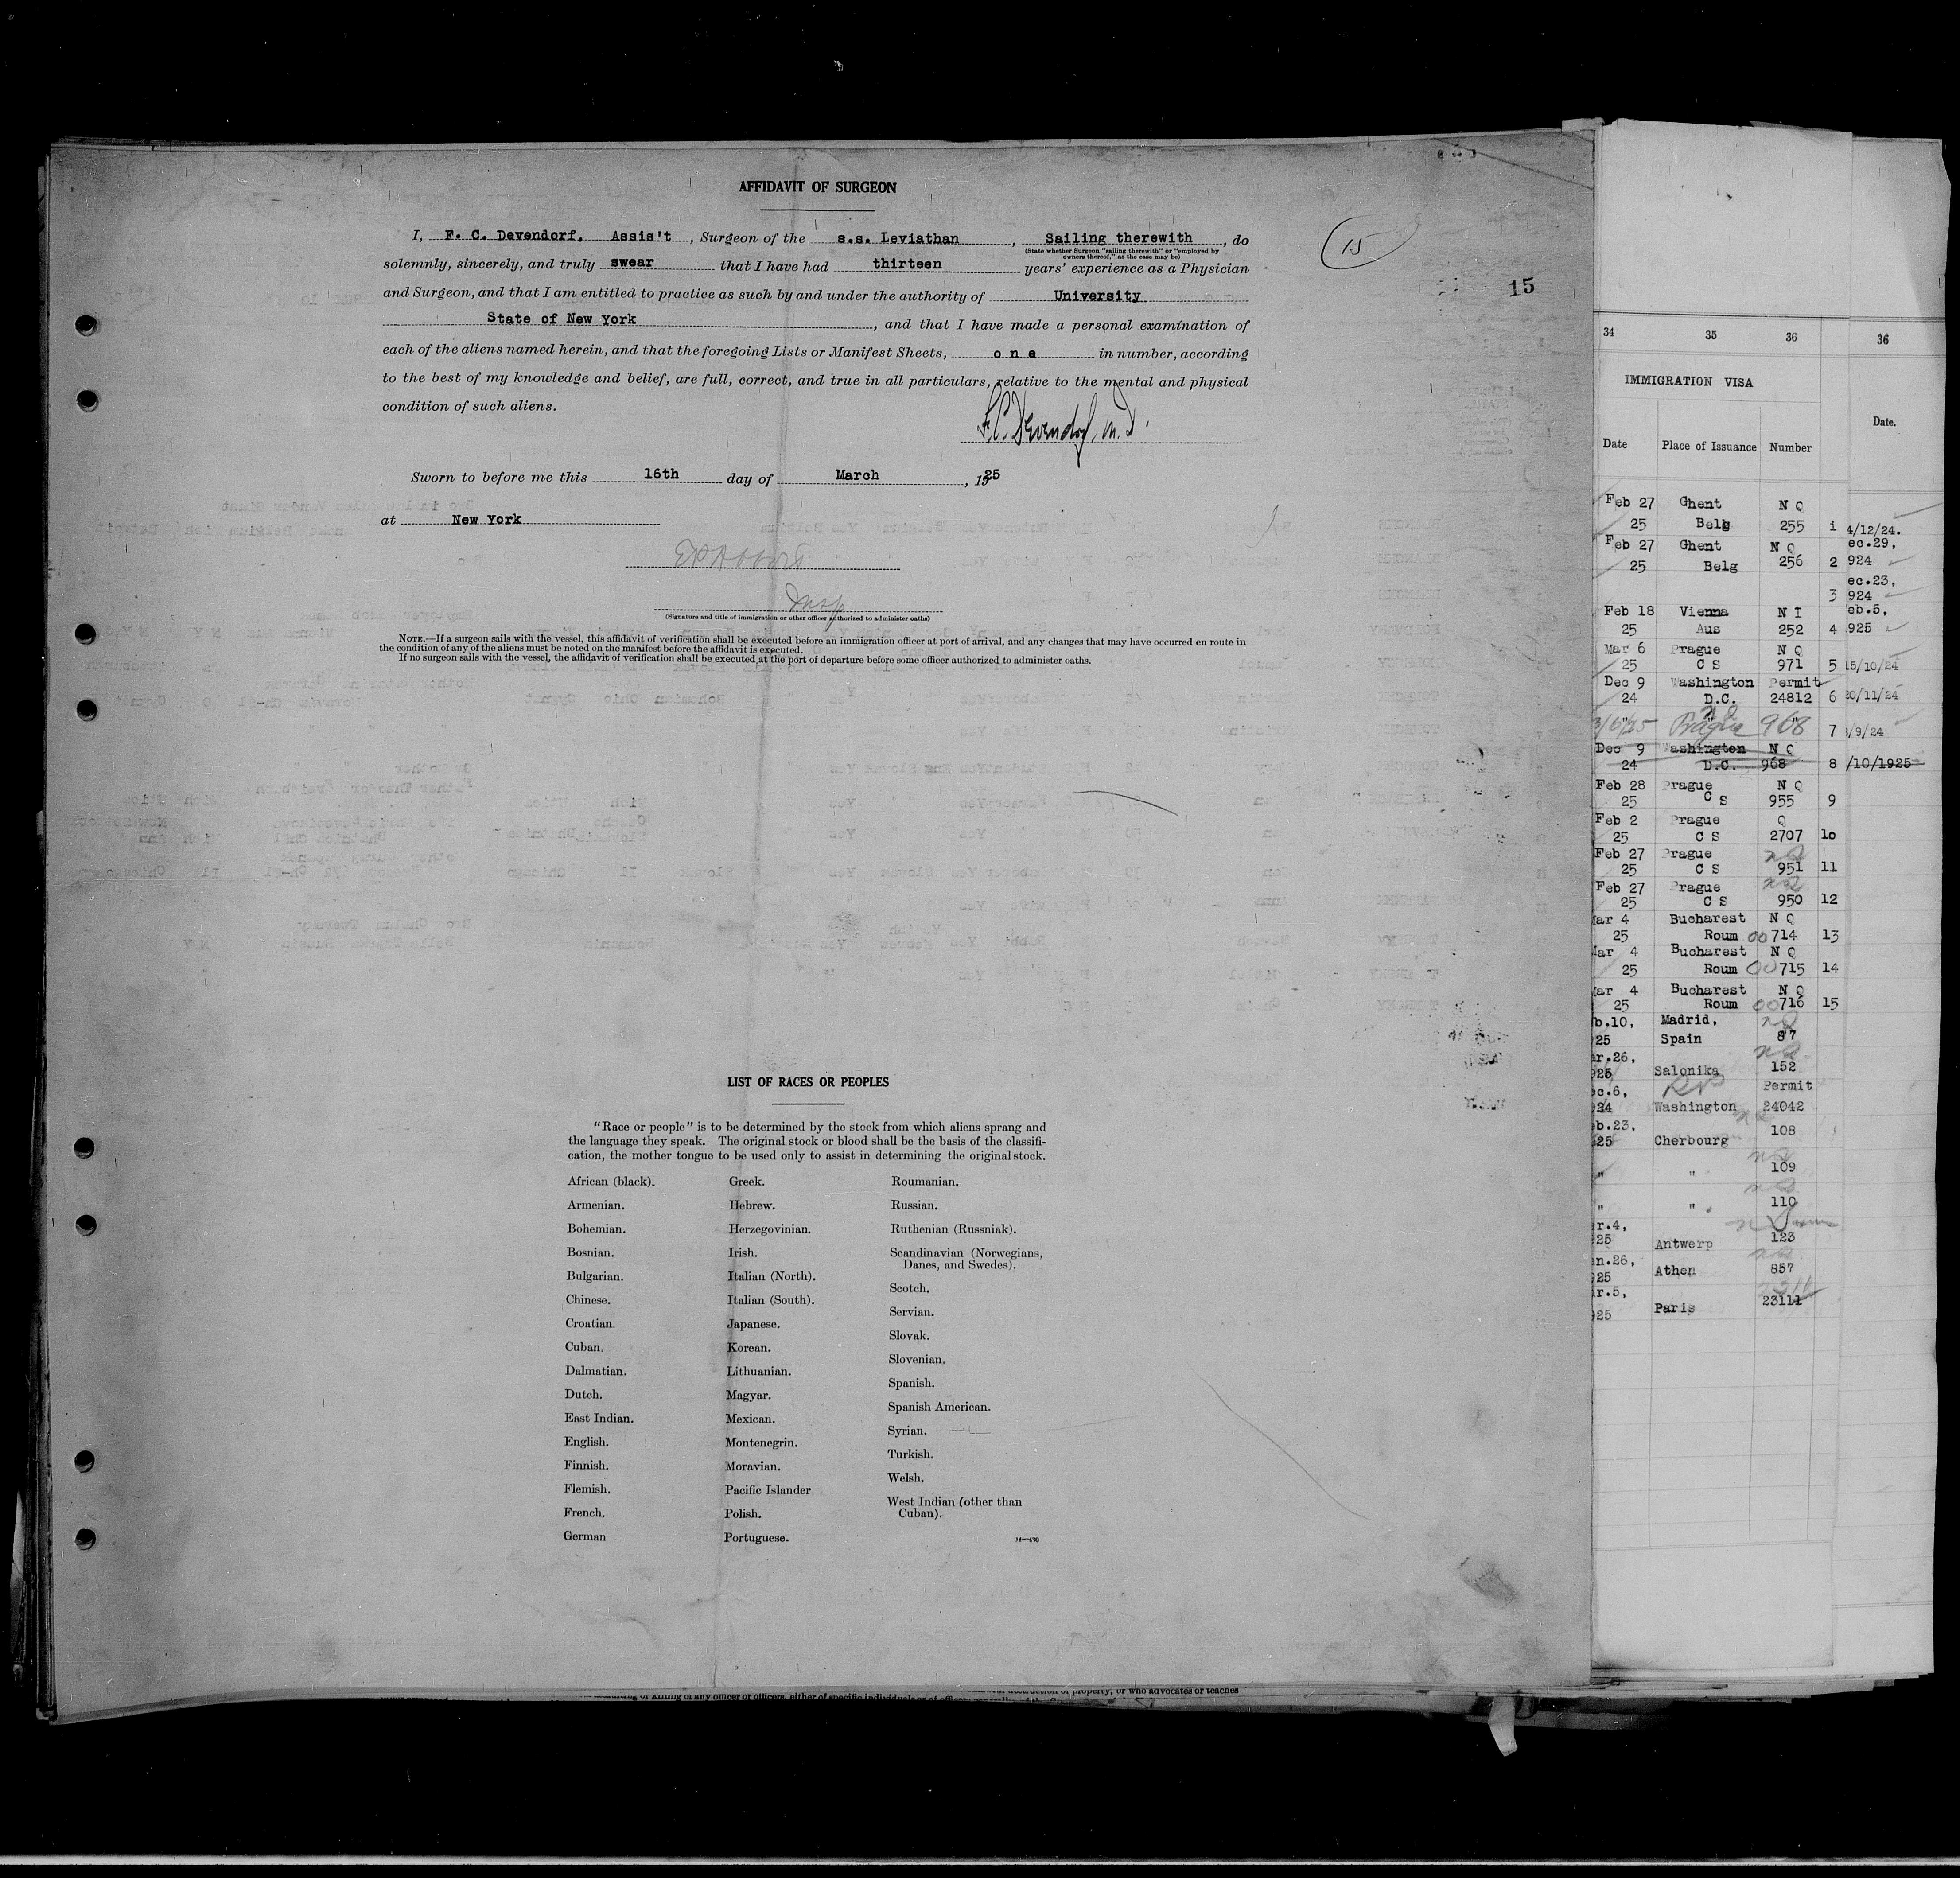 AFFIDAVIT OF SURGEON
I, F. C. Devendorf. Assis't, Surgeon of the s.s. Leviathan, Sailing therewith, do
(State whether Surgeon "sailing therewith" or "employed by
owners thereof," as the case may be)
solemnly, sincerely, and truly swear that I have had thirteen years' experience as a Physician
and Surgeon, and that I am entitled to practice as such by and under the authority of University
State of New York, and that I have made a personal examination of
each of the aliens named herein, and that the foregoing Lists or Manifest Sheets, one in number, according
to the best of my knowledge and belief, are full, correct, and true in all particulars, relative to the mental and physical
condition of such aliens.
F.C. Devendorf, M.D.
Sworn to before me this 16th day of March, 1925
at New York
Insp
(Signature and title of immigration or other officer authorized to administer oaths)
NOTE.—If a surgeon sails with the vessel, this affidavit of verification shall be executed before an immigration officer at port of arrival, and any changes that may have occurred en route in
the condition of any of the aliens must be noted on the manifest before the affidavit is executed.
If no surgeon sails with the vessel, the affidavit of verification shall be executed at the port of departure before some officer authorized to administer oaths.
15
15
LIST OF RACES OR PEOPLES
"Race or people" is to be determined by the stock from which aliens sprang and
the language they speak. The original stock or blood shall be the basis of the classifi-
cation, the mother tongue to be used only to assist in determining the original stock.
African (black).
Armenian.
Bohemian.
Bosnian.
Bulgarian.
Chinese.
Croatian.
Cuban.
Dalmatian.
Dutch.
East Indian.
English.
Finnish.
Flemish.
French.
German
Greek.
Hebrew.
Herzegovinian.
Irish.
Italian (North).
Italian (South).
Japanese.
Korean.
Lithuanian.
Magyar.
Mexican.
Montenegrin.
Moravian.
Pacific Islander.
Polish.
Portuguese.
Roumanian.
Russian.
Ruthenian (Russniak).
Scandinavian (Norwegians,
Danes, and Swedes).
Scotch.
Servian.
Slovak.
Slovenian.
Spanish.
Spanish American.
Syrian.
Turkish.
Welsh.
West Indian (other than
Cuban).
34 35 36
IMMIGRATION VISA
Date Place of Issuance Number
Feb 27 Ghent N Q
25 Belg 255 1
Feb 27 Ghent N Q
25 Belg 256 2
3
Feb 18 Vienna N I
25 Aus 252 4
Mar 6 Prague N Q
25 C S 971 5
Dec 9 Washington Permit
24 D.C. 24812 6
3/6/25 Prague 968 7
Dec 9 Washington N Q
24 D.C. 968 8
Feb 28 Prague N Q
25 C S 955 9
Feb 2 Prague Q
25 C S 2707 10
Feb 27 Prague NQ
25 C S 951 11
Feb 27 Prague NQ
25 C S 950 12
Mar 4 Bucharest N Q
25 Roum 00714 13
Mar 4 Bucharest N Q
25 Roum 00715 14
Mar 4 Bucharest N Q
25 Roum 00716 15
b.10, Madrid,
25 Spain 87
ar.26,
925 Salonika 152
ec.6, Permit
924 Washington 24042
b.23,
925 Cherbourg 108
" " 109
" " 110
r.4,
25 Antwerp 123
n.26,
25 Athen 857
r.5,
925 Paris 23111
36
Date.
4/12/24.
ec.29,
924
ec.23,
924
eb.5,
925
15/10/24
20/11/24
/9/24
/10/1925